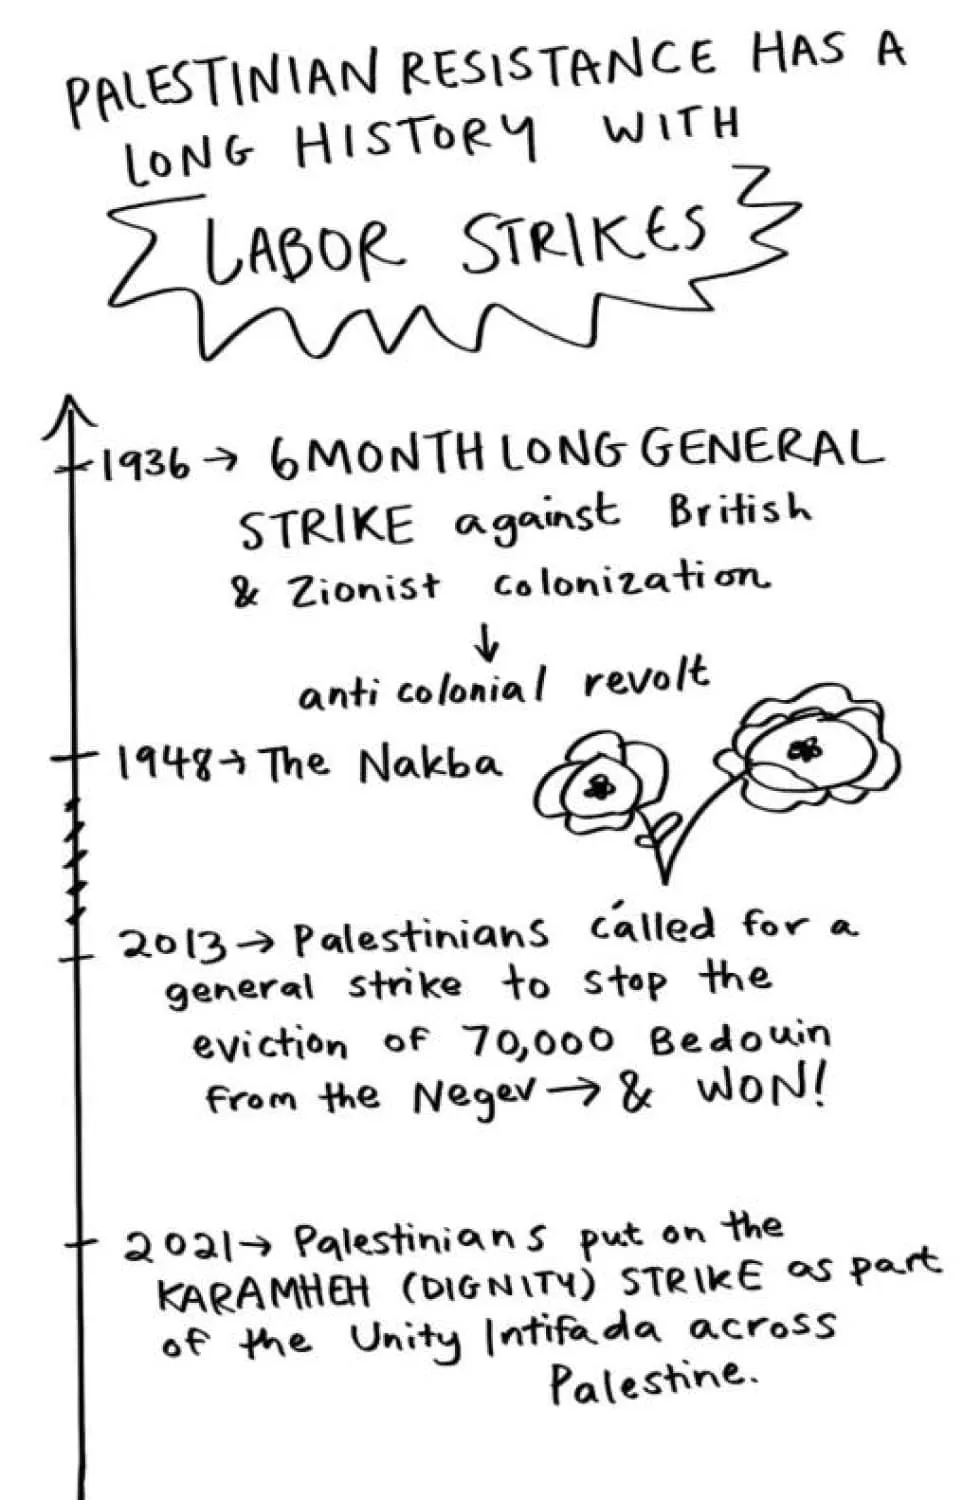 PALESTINIAN RESISTANCE HAS A
LONG HISTORY WITH
LABOR STRIKES
1936 → 6 MONTH LONG GENERAL
STRIKE against British
& Zionist colonization
↓
anti colonial revolt
1948 → The Nakba
2013 → Palestinians called for a
general strike to stop the
eviction of 70,000 Bedouin
from the Negev → & WON!
2021 → Palestinians put on the
KARAMHEH (DIGNITY) STRIKE as part
of the Unity Intifada across
Palestine.